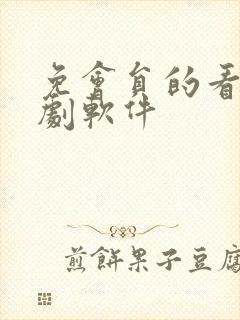 免會員的看
劇軟件
煎餅果子豆腐